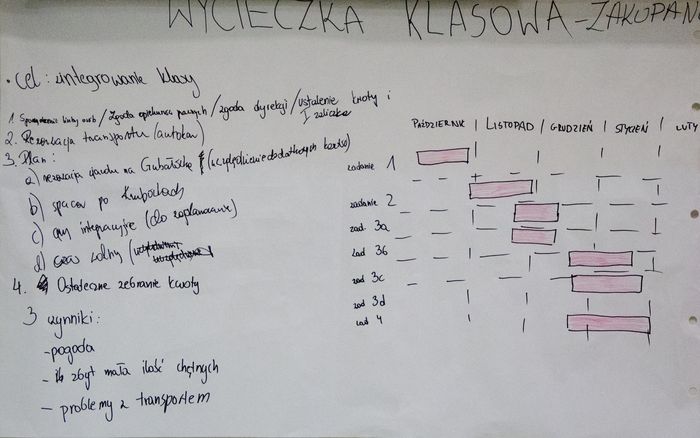 WYCIECZKA KLASOWA - ZAKOPAN
• cel: zintegrowanie klasy
1. listy osób / Zgoda opiekunów prawnych / zgoda dyrekcji / ustalenie kwoty i
I zaliczka
2. Rezerwacja transportu (autokar)
3. Plan:
a) rezerwacja wjazdu na Gubałówkę (uwzględnienie dodatkowych kosztów)
b) spacer po Krupówkach
c) gry integracyjne (do zaplanowania)
d) czas wolny
4. Ostateczne zebranie kwoty
3 czynniki:
- pogoda
- zbyt mała ilość chętnych
- problemy z transportem
PAŹDZIERNIK | LISTOPAD | GRUDZIEŃ | STYCZEŃ | LUTY
zadanie 1
zadanie 2
zad. 3a
zad 3b
zad 3c
zad 3d
zad 4